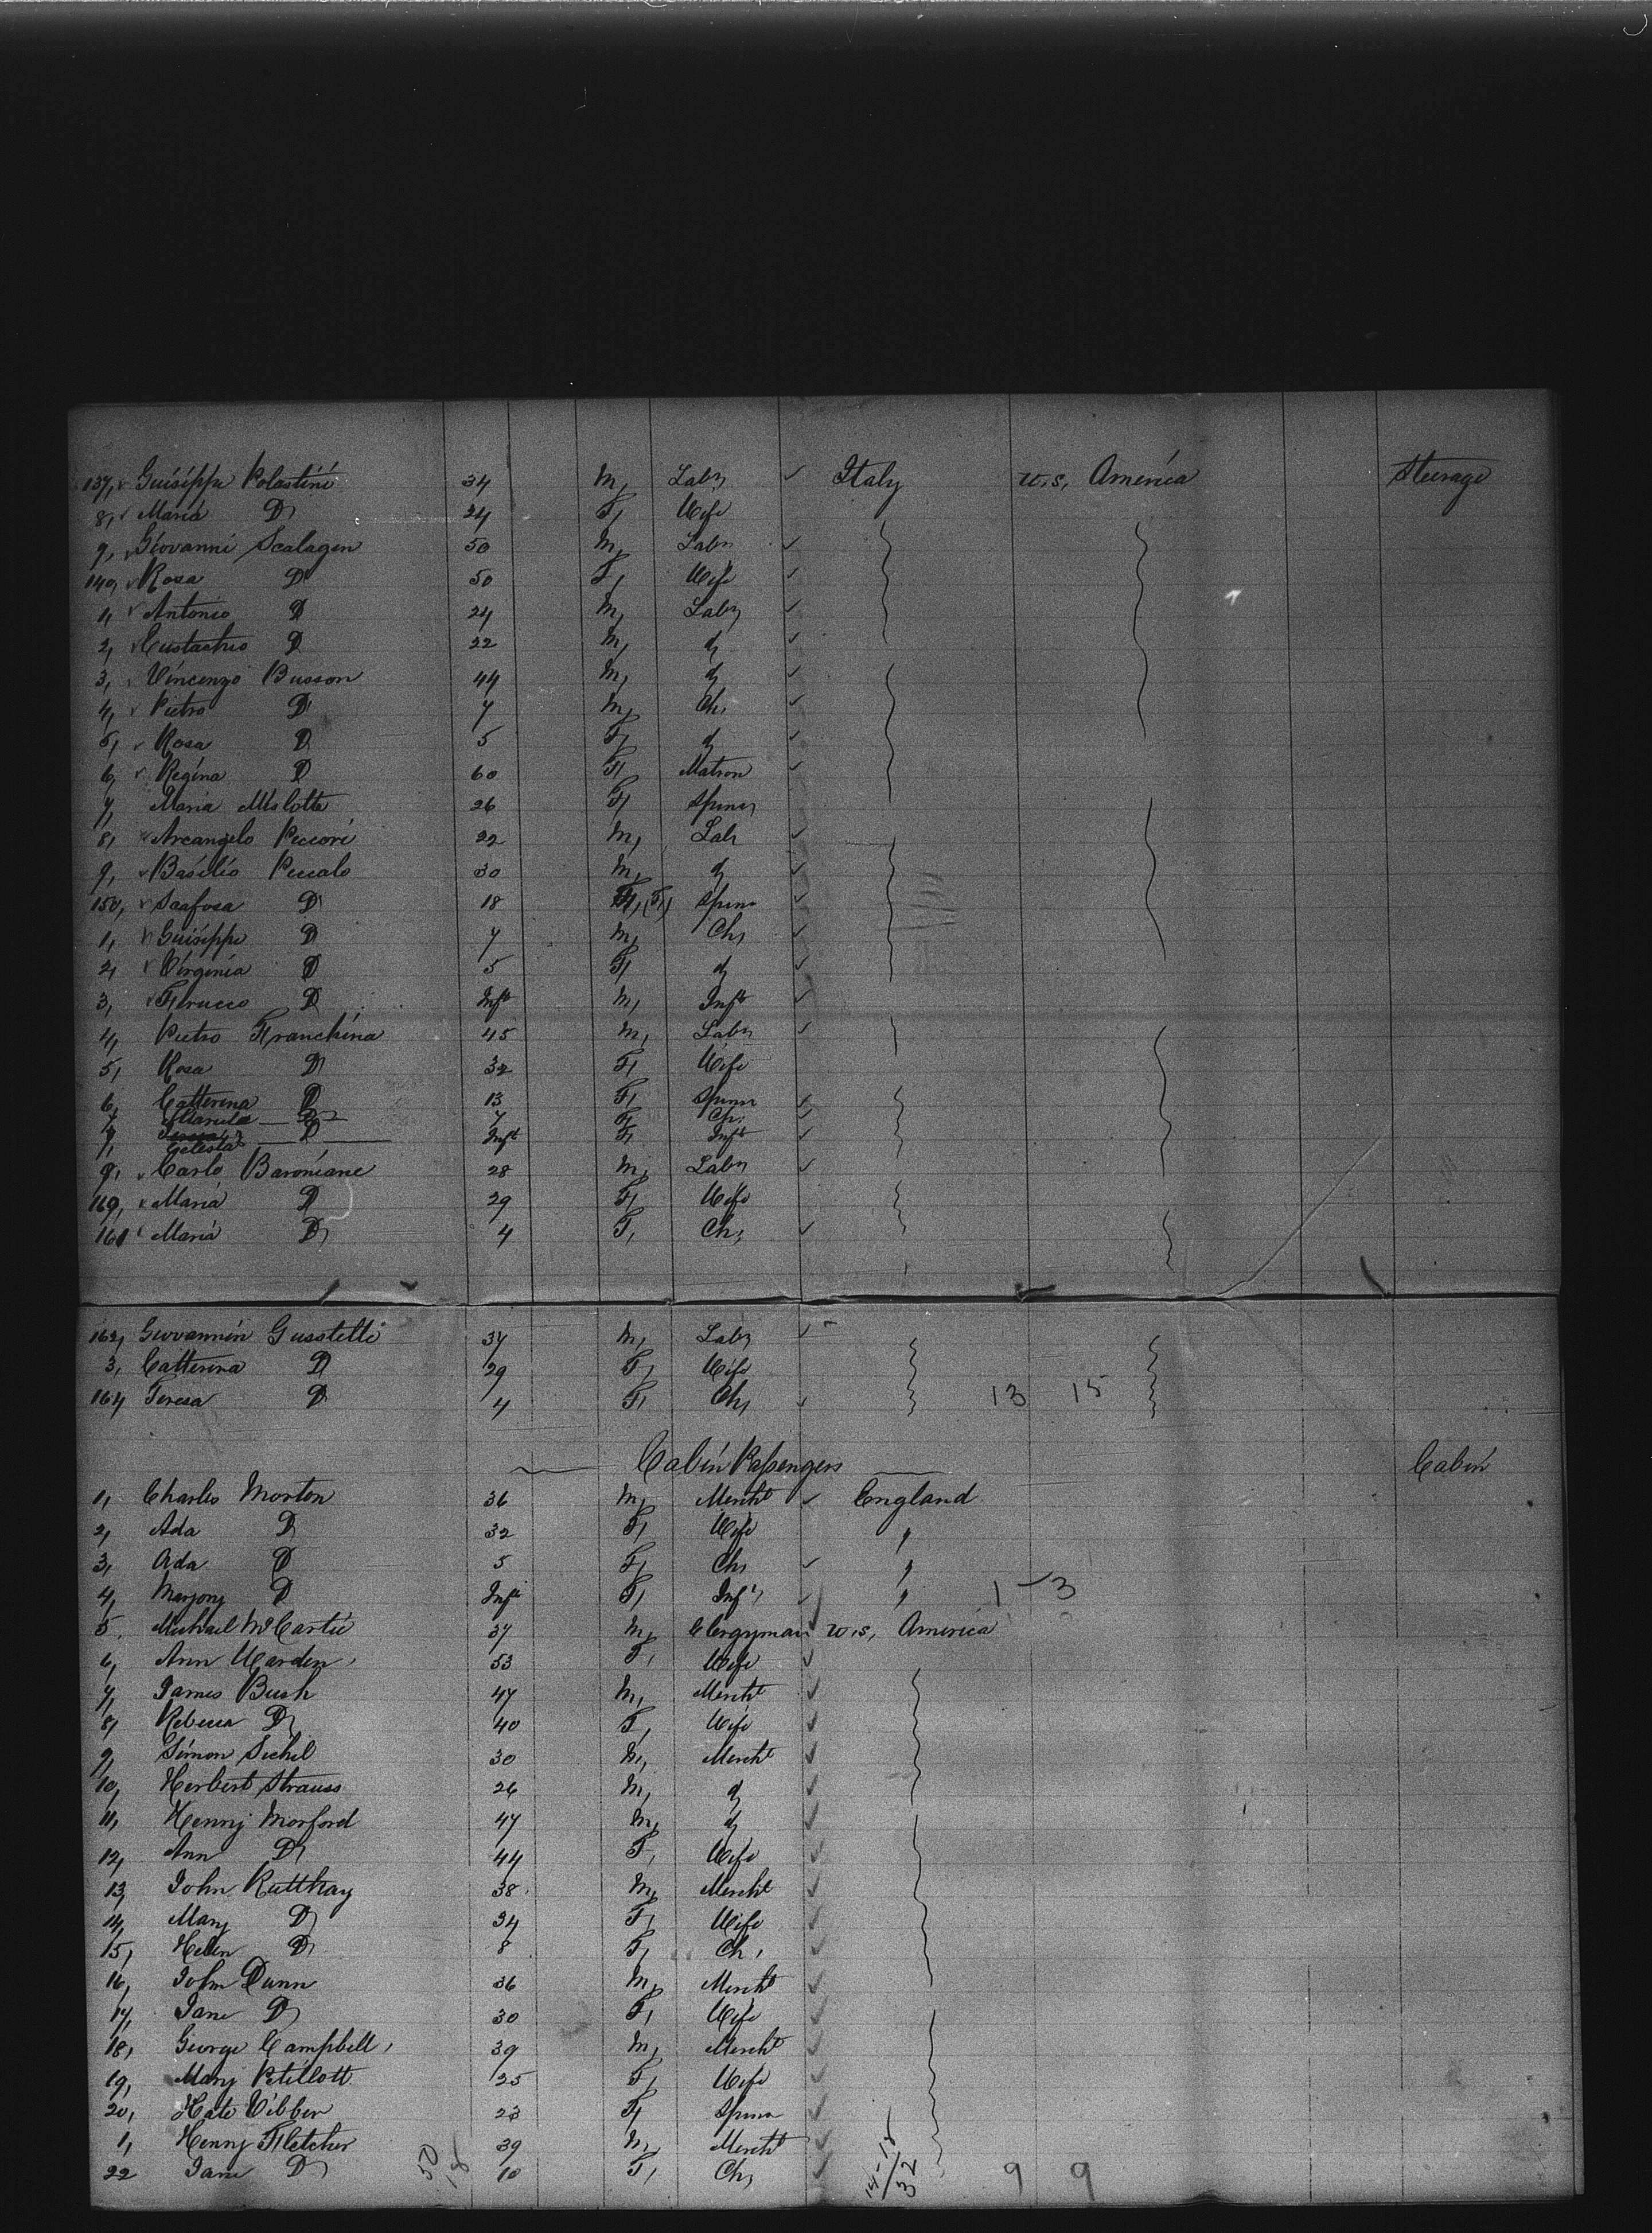 137, Guiseppe Polastini 34 M, Labr Italy U.S. America Steerage
8, Maria D 24 F, Wife
9, Giovanni Scalagen 50 M, Labr
140, Rosa D 50 F, Wife
1, Antonio D 24 M, Labr
2, Eustachio D 22 M, d
3, Vincenzo Busson 44 M, d
4, Pietro D 7 M, Ch,
5, Rosa D 5 F, d
6, Regina D 60 F, Matron
7, Maria Milotta 26 F, Spinr
8, Arcangelo Piccori 22 M, Labr
9, Basilio Piccalo 30 M, d
150, D 18 F, (F,) Spinr
1, Guiseppe D 7 M, Ch,
2, Virginia D 5 F, d
3, Ferucco D Inft M, Inft
4, Pietro Franchina 45 M, Labr
5, Rosa D 32 F, Wife
6, Catterina D 13 F, Spinr
7, D 7 F, Ch,
Celesta D Inft F, Inft
9, Carlo Baroniane 28 M, Labr
160, Maria D 29 F, Wife
161 Maria D 4 F, Ch,
162, Giovannin Gusstelli 37 M, Labr
3, Catterina D 29 F, Wife
164 Teresa D 4 F, Ch, 13 15
Cabin Passengers Cabin
1, Charles Morton 36 M, Mercht England
2, Ada D 32 F, Wife "
3, Ada D 5 F, Ch, "
4, Marjory D Inft F, Inft " 1 - 3
5, Michael McCartie 37 M, Clergyman U.S. America
6, Ann Warden, 53 F, Wife
7, James Bush 47 M, Mercht
8, Rebecca D 40 F, Wife
9, Simon Sichel 30 M, Mercht
10, Herbert Strauss 26 M, d
11, Henry Morford 47 M, d
12, Ann D 44 F, Wife
13, John Rutthay 38 M, Mercht
14, Mary D 34 F, Wife
15, Helen D 8 F, Ch,
16, John Dunn 36 M, Mercht
17, Jane D 30 F, Wife
18, George Campbell, 39 M, Mercht
19, Mary Petillott 25 F, Wife
20, Kate Vibber 23 F, Spinr
1, Henry Fletcher 39 M, Mercht
22 Jane D 10 F, Ch, 9 9
50
18
14-18
32